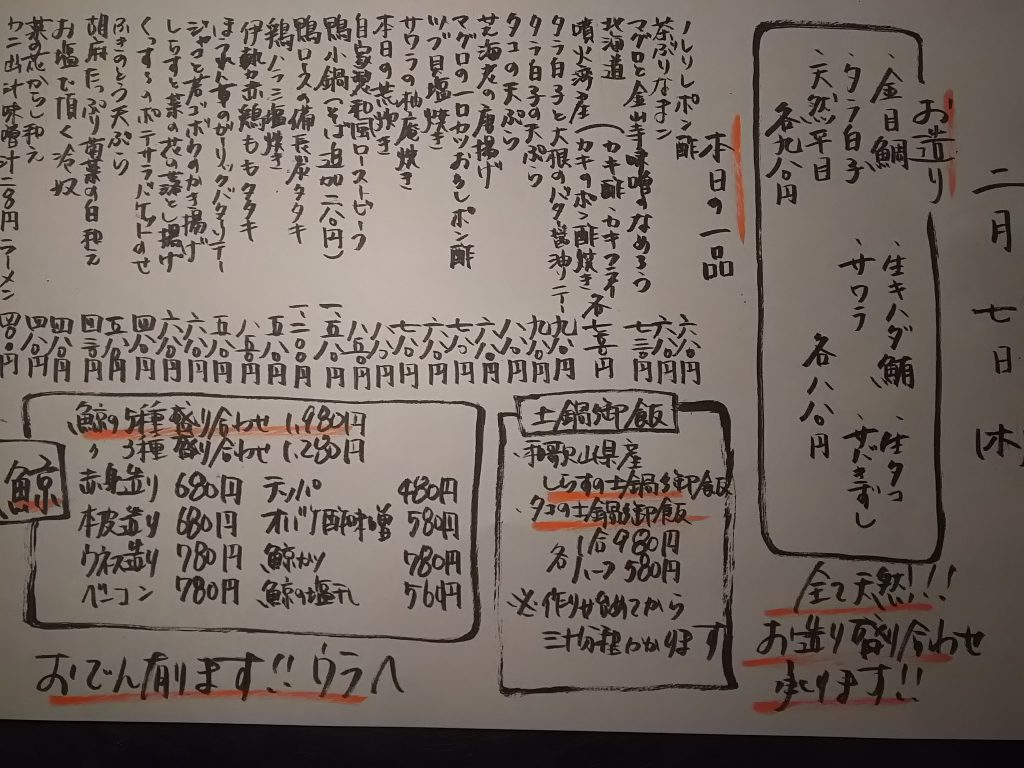 二月七日(木)
お造り
、金目鯛
、タラ白子
、天然平目
各九八〇円
、生キハダ鮪
、サワラ
各八八〇円
、生タコ
全て天然!!!
お造り盛り合わせ
承ります!!
本日の一品
ポン酢 六八〇円
茶ぶりなまこ 六八〇円
マグロと金山寺味噌のなめろう 七三〇円
北海道
噴火湾産(カキ酢、カキフライ
カキのポン酢焼き 各七五〇円
タラ白子と大根のバタ醤油ソテー 九八〇円
タラ白子の天ぷら 九八〇円
タコの天ぷら 八八〇円
芝海老の唐揚げ 六八〇円
マグロの一口カツおろしポン酢 七八〇円
ツブ貝塩焼き 六八〇円
サワラの柚庵焼き 七八〇円
本日の荒炊き
自家製和風ローストビーフ 八五〇円
鴨小鍋(そば追加二八〇円) 一、五八〇円
鴨ロースの備長炭タタキ 一、二〇〇円
鶏ハラミ塩焼き 五八〇円
伊勢赤鶏ももタタキ 八五〇円
ほうれん草のガーリックバターソテー 五八〇円
ジャコと若ゴボウのかき揚げ 六八〇円
しらすと菜の花の落とし揚げ 六八〇円
くんすろのポテサラバゲットのせ 四八〇円
ふきのとう天ぷら 五八〇円
胡麻たっぷり菊菜の白和え 四三〇円
お塩で頂く冷奴 四八〇円
菜の花からし和え 四八〇円
カニ出汁味噌汁二八〇円 ラーメン 四〇〇円
土鍋御飯
、和歌山県産
しらすの土鍋御飯
、タコの土鍋御飯
各1合 980円
各ハーフ 580円
※作り始めてから
三十分程かかります
鯨
鯨の5種盛り合わせ 1,980円
〃 3種盛り合わせ 1,280円
赤身造り 680円 テッパ 480円
本皮造り 680円 オバケ酢味噌 580円
ウネス造り 780円 鯨カツ 780円
ベーコン 780円 鯨の塩干し 560円
おでん有ります!!ウラへ